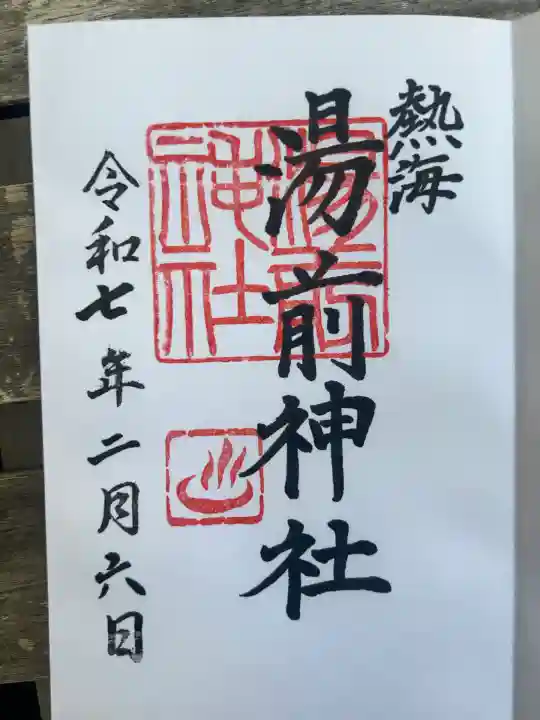 熱海
湯前神社
令和七年二月六日
湯前神社